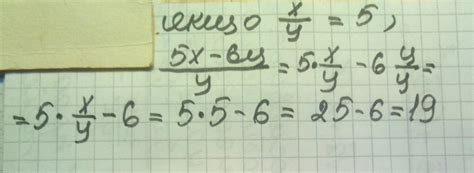 якщо x/y = 5,
(5x-6y)/y = 5·x/y - 6 y/y =
= 5·x/y - 6 = 5·5-6 = 25-6=19